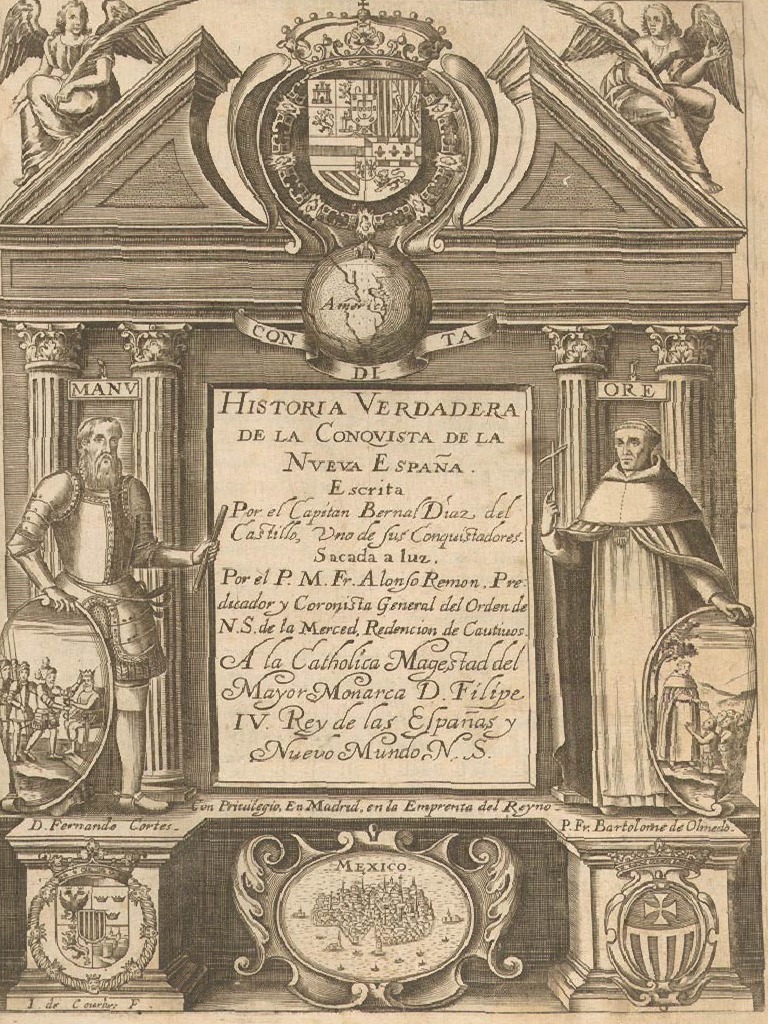 America
CON DI TA
MANV
ORE
HISTORIA VERDADERA
DE LA CONQVISTA DE LA
NVEVA ESPAÑA.
Escrita
Por el Capitan Bernal Diaz del
Castillo, Uno de sus Conquistadores.
Sacada a luz.
Por el P. M. Fr. Alonso Remon, Pre-
dicador y Coronista General del Orden de
N.S. de la Merced, Redencion de Cautiuos.
A la Catholica Magestad del
Mayor Monarca D. Filipe
IV. Rey de las Españas y
Nuevo Mundo, N. S.
Con Priuilegio, En Madrid, en la Emprenta del Reyno
D. Fernando Cortes.
P. Fr. Bartolome de Olmedo.
MEXICO.
I. de Courbes F.